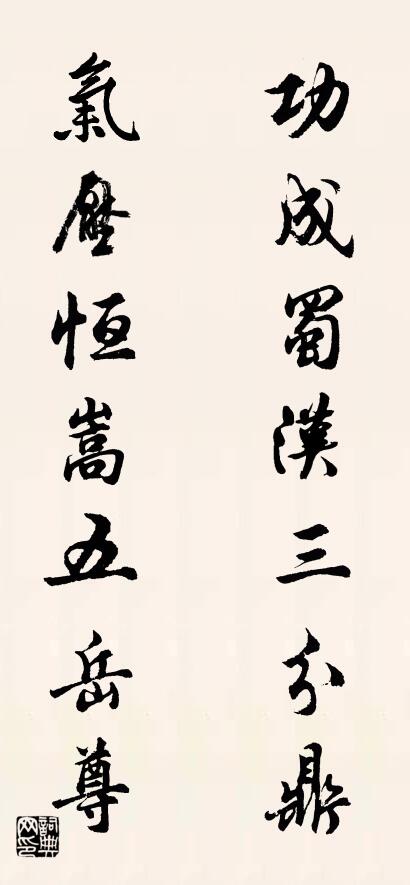 功成蜀漢三分鼎
氣壓恒嵩五岳尊
詞典网印